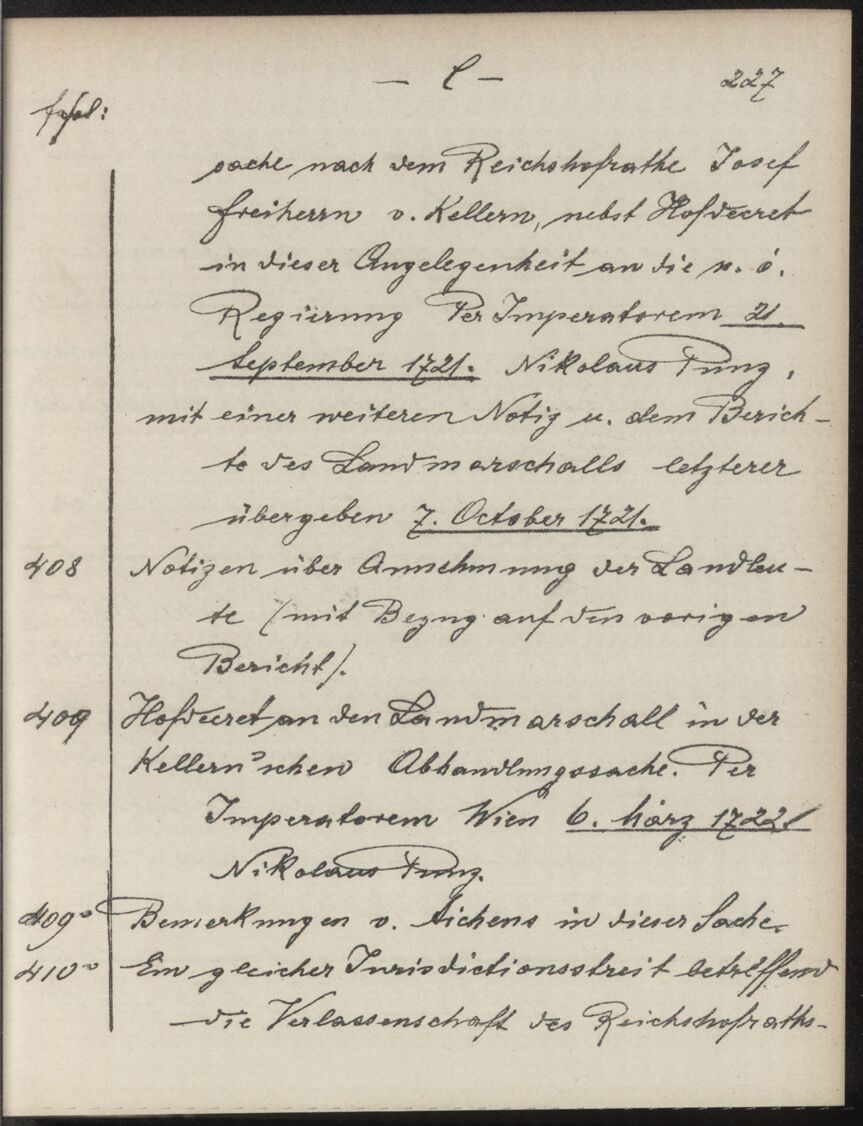 — C — 227
fol:
sache nach dem Reichshofrathe Josef
Freiherrn v. Kellern, nebst Hofdecret
in dieser Angelegenheit an die n. ö.
Regierung Per Imperatorem 21
September 1721. Nikolaus Pung,
mit einer weiteren Notiz u. dem Berich-
te des Landmarschalls letzterer
übergeben 7. October 1721.
408 Notizen über Annehmung der Landleu-
te (mit Bezug auf den vorigen
Bericht).
409 Hofdecret an den Landmarschall in der
Kellern'schen Abhandlungssache. Per
Imperatorem Wien 6. März 1722
Nikolaus Pung.
409° Bemerkungen v. Aichens in dieser Sache.
410° Ein gleicher Jurisdictionsstreit betreffend
die Verlassenschaft des Reichshofraths-